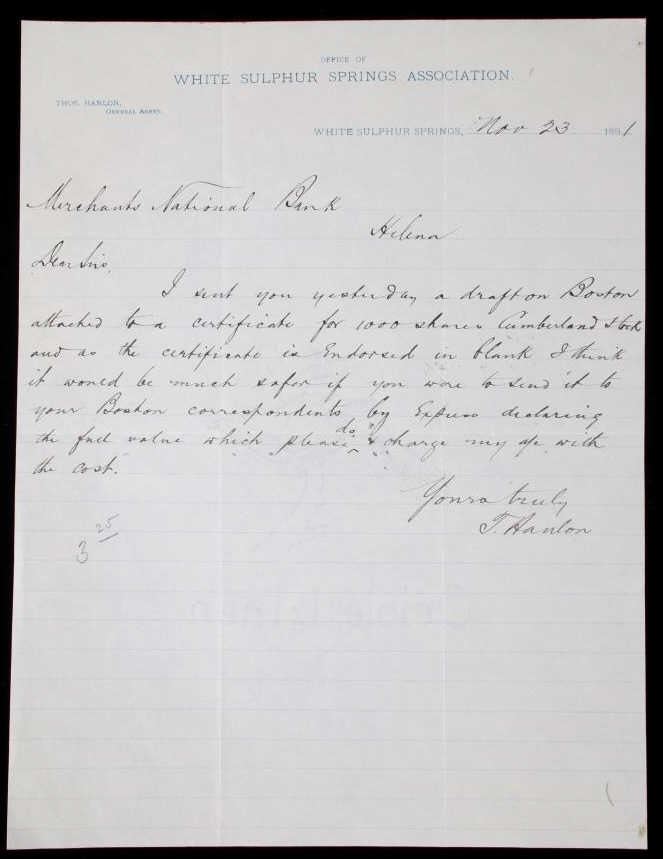 OFFICE OF
WHITE SULPHUR SPRINGS ASSOCIATION.
THOS. HANLON,
GENERAL AGENT.
WHITE SULPHUR SPRINGS, Nov 23 1891
Merchants National Bank
Helena
Dear Sirs,
I sent you yesterday a draft on Boston
attached to a certificate for 1000 shares Cumberland Stock
and as the certificate is Endorsed in blank I think
it would be much safer if you were to send it to
your Boston correspondents by Express declaring
the full value which please do & charge my a/c with
the cost.
Yours truly
T. Hanlon
3 25